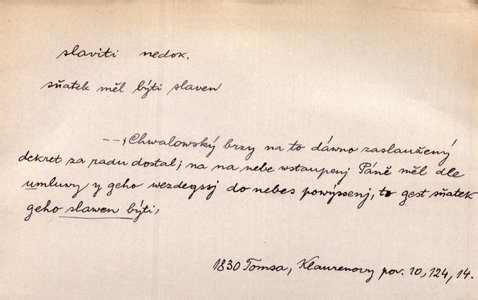 slaviti nedok.
sňatek měl býti slaven
--; Chwalowský brzy na to dáwno zaslaužený
dekret za radu dostal; na na nebe wstaupenj Páně měl dle
umluwy y geho wezdegssj do nebes powýssenj, to gest sňatek
geho slawen býti,
1830 Tomsa, Klaurenovy pov. 10, 124, 14.